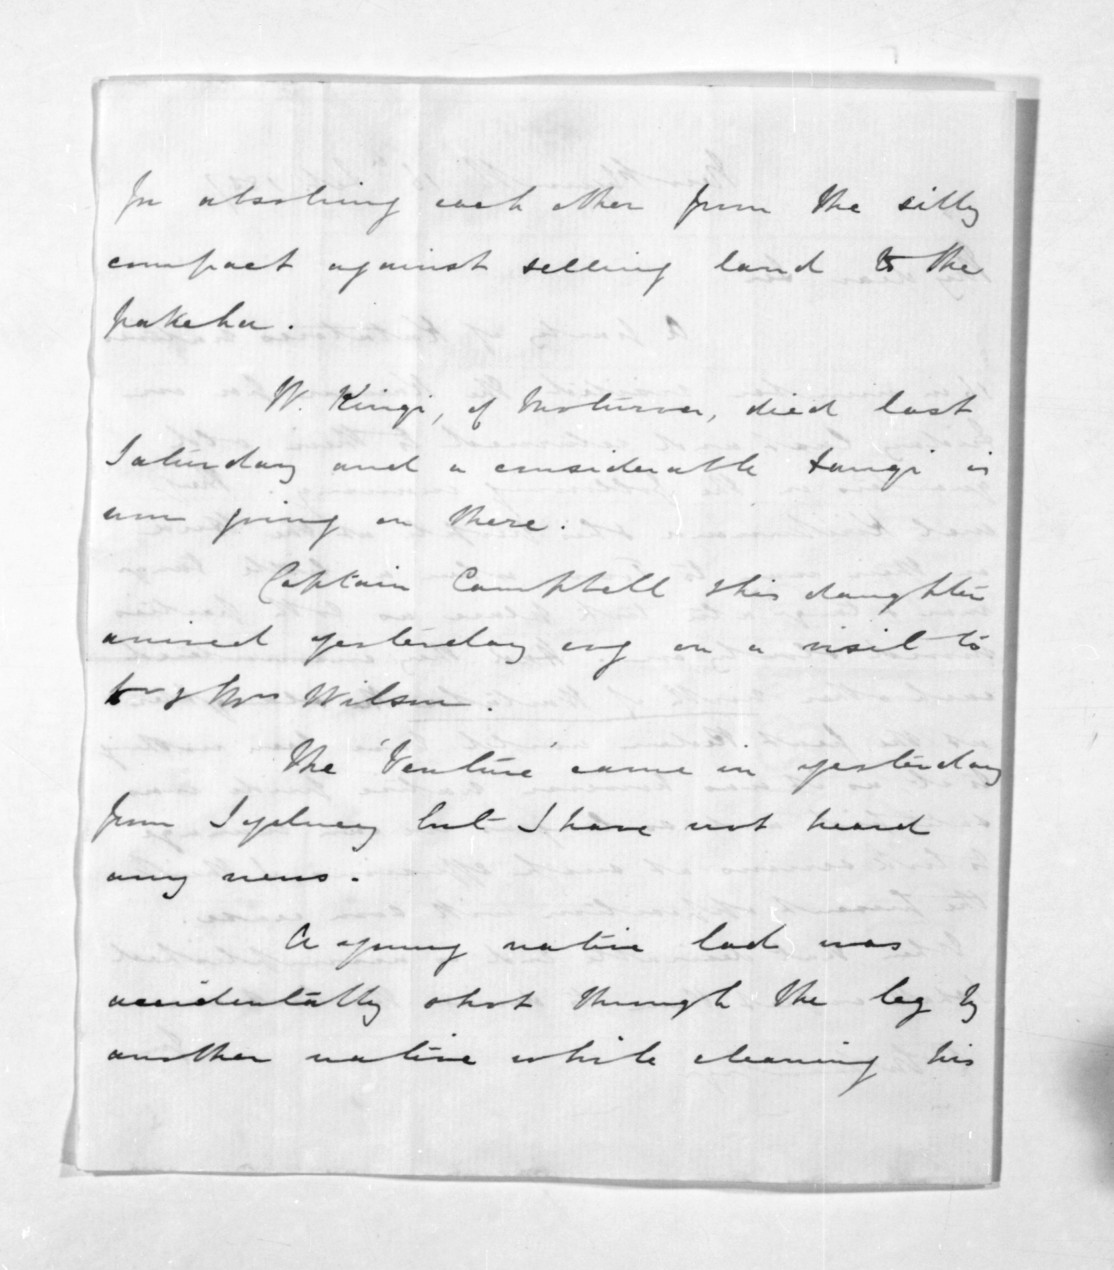 In absolving each other from the silly
compact against selling land to the
pakeha.
W. Kingi, of Moturoa, died last
Saturday and a considerable tangi is
now going on there.
Captain Campbell & his daughter
arrived yesterday on a visit to
Dr & Mrs Wilson.
The 'Venture' came in yesterday
from Sydney but I have not heard
any news.
A young native lad was
accidentally shot through the leg by
another native while cleaning his